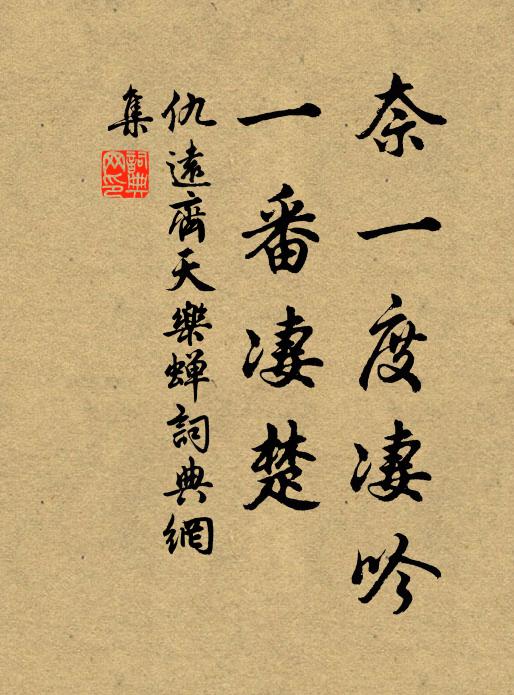 奈一度凄吟
一番凄楚
仇遠齊天樂蟬詞典網
集
詞典网印